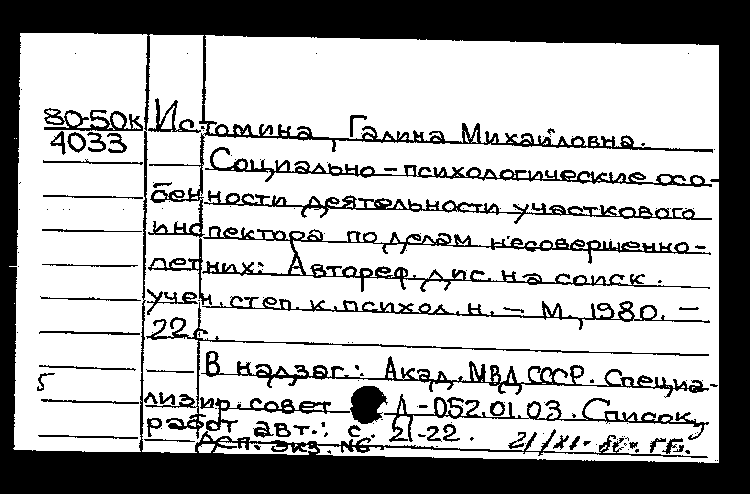 80-50к Истомина, Галина Михайловна.
4033
Социально-психологические осо-
бенности деятельности участкового
инспектора по делам несовершенно-
летних: Автореф. дис. на соиск.
учен. степ. к. психол. н. - М., 1980. -
22 с.
В надзаг.: Акад. МВД СССР. Специа-
лизир. совет Д-052.01.03. Список
работ авт.: с. 21-22.
Деп. экз. №6. 21/XI-80г. ГБ.
5